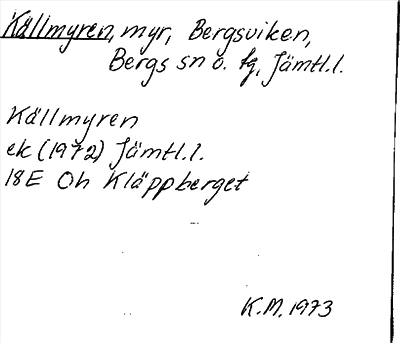 Källmyren, myr, Bergsviken,
Bergs sn o. fg, Jämtl.l.
Källmyren
ek (1972) Jämtl.l.
18E Oh Kläppberget
K.M. 1973